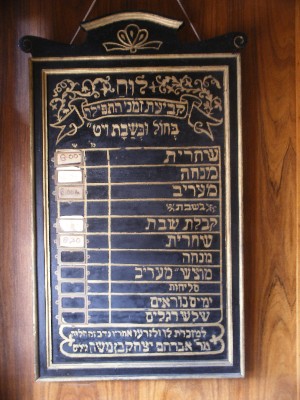 לוח
קביעת זמני התפילה
בחול ובשבת ויט"
שחרית
מנחה
מעריב
בשבת
קבלת שבת
שחרית
מנחה
מוצש"י מעריב
סליחות
ימים נוראים
שלש רגלים
למזכרת
מר אברהם יצחק בן משה